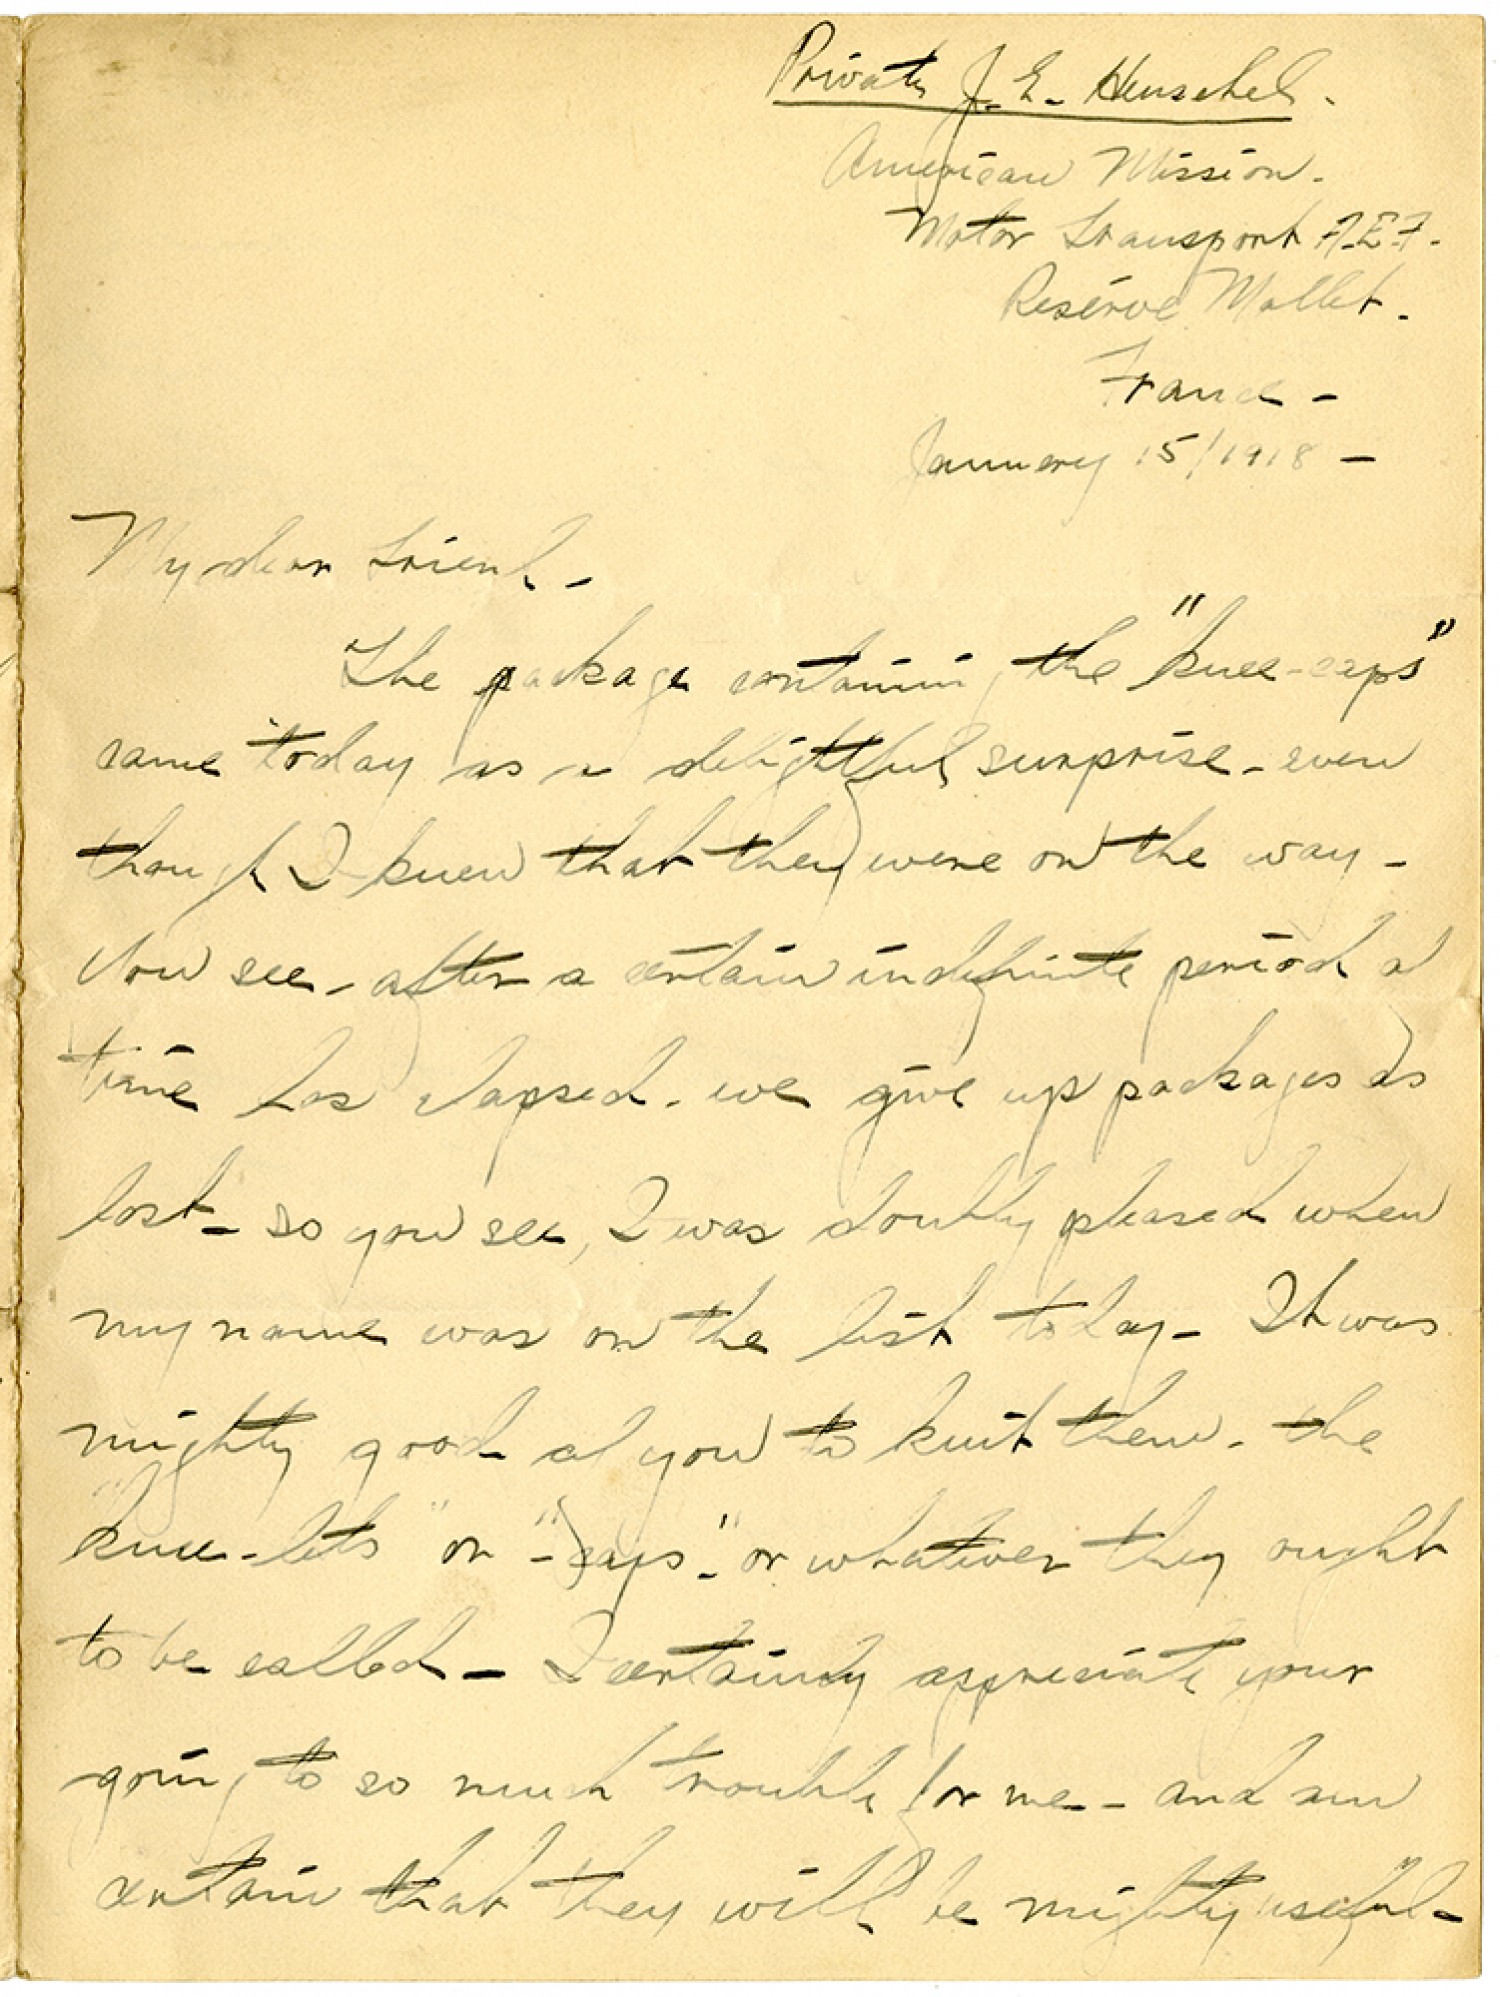 Private J. E. Henschel.
American Mission.
Motor Transport A.E.F.
Reserve Mallet.
France -
January 15/1918 -
My dear friend -
The package containing the "knee-caps"
came today as a delightful surprise - even
though I knew that they were on the way -
You see - after a certain indefinite period of
time has elapsed - we give up packages as
lost - so you see, I was doubly pleased when
my name was on the list today - It was
mighty good of you to knit them - the
knee-lets" or "-caps -" or whatever they ought
to be called - I certainly appreciate your
going to so much trouble for me - and am
certain that they will be mighty useful -